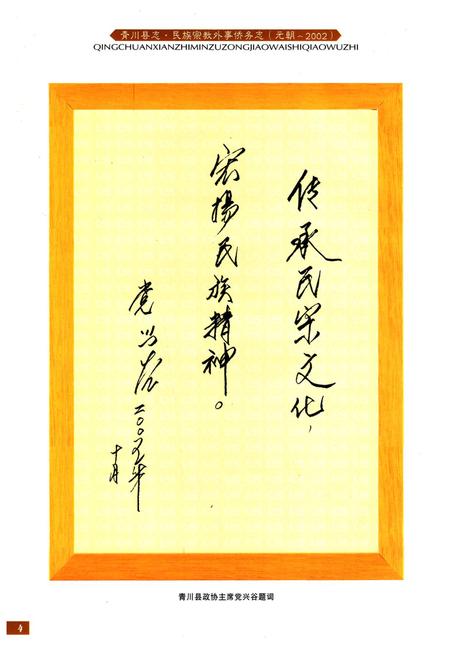 青川县志·民族宗教外事侨务志(元朝~2002)
QINGCHUANXIANZHIMINZUZONGJIAOWAISHIQIAOWUZHI
传承民宗文化,
宏扬民族精神。
党兴谷二〇〇五年
十月
青川县政协主席党兴谷题词
4